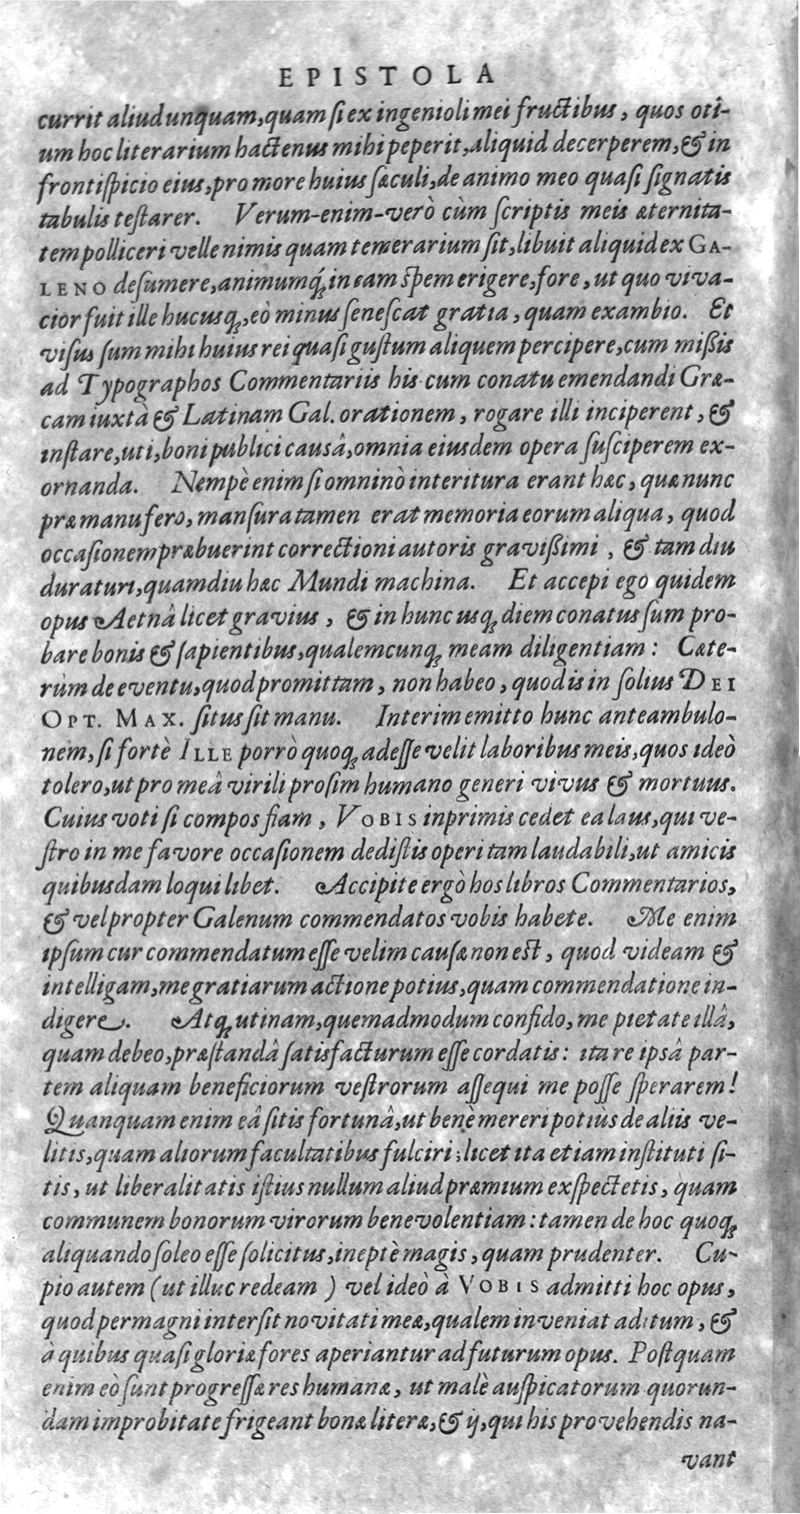 EPISTOLA
currit aliud unquam, quam si ex ingenioli mei fructibus, quos oti-
um hoc literarium hactenus mihi peperit, aliquid decerperem, & in
frontispicio eius, pro more huius sæculi, de animo meo quasi signatis
tabulis testarer. Verum-enim-verò cùm scriptis meis æternita-
tem polliceri velle nimis quam temerarium sit, libuit aliquid ex GA-
LENO desumere, animumq́ꝫ in eam spem erigere, fore, ut quo viva-
cior fuit ille hucusqꝫ, eò minus senescat gratia, quam exambio. Et
visus sum mihi huius rei quasi gustum aliquem percipere, cum missis
ad Typographos Commentariis his cum conatu emendandi Græ-
cam iuxtà & Latinam Gal. orationem, rogare illi inciperent, &
instare, uti, boni publici causâ, omnia eiusdem opera susciperem ex-
ornanda. Nempè enim si omninò interitura erant hæc, quæ nunc
præ manu fero, mansura tamen erat memoria eorum aliqua, quod
occasionem præbuerint correctioni autoris gravissimi, & tam diu
duraturi, quamdiu hæc Mundi machina. Et accepi ego quidem
opus Aetnâ licet gravius, & in hunc usqꝫ diem conatus sum pro-
bare bonis & sapientibus, qualemcunqꝫ meam diligentiam: Cæte-
rùm de eventu, quod promittam, non habeo, quod is in solius DEI
OPT. MAX. situs sit manu. Interim emitto hunc anteambulo-
nem, si fortè ILLE porrò quoqꝫ adesse velit laboribus meis, quos ideò
tolero, ut pro meâ virili prosim humano generi vivus & mortuus.
Cuius voti si compos fiam, VOBIS inprimis cedet ea laus, qui ve-
stro in me favore occasionem dedistis operi tam laudabili, ut amicis
quibusdam loqui libet. Accipite ergò hos libros Commentarios,
& vel propter Galenum commendatos vobis habete. Me enim
ipsum cur commendatum esse velim causa non est, quod videam &
intelligam, me gratiarum actione potius, quam commendatione in-
digere. Atqꝫ utinam, quemadmodum confido, me pietate illâ,
quam debeo, præstandâ satisfacturum esse cordatis: ita re ipsâ par-
tem aliquam beneficiorum vestrorum assequi me posse sperarem!
Quanquam enim eâ sitis fortunâ, ut benè mereri potiùs de aliis ve-
litis, quam aliorum facultatibus fulciri; licet ita etiam instituti si-
tis, ut liberalitatis istius nullum aliud præmium exspectetis, quam
communem bonorum virorum benevolentiam: tamen de hoc quoqꝫ
aliquando soleo esse solicitus, ineptè magis, quam prudenter. Cu-
pio autem (ut illuc redeam ) vel ideò à VOBIS admitti hoc opus,
quod permagni intersit novitati meæ, qualem inveniat aditum, &
à quibus quasi gloriæ fores aperiantur ad futurum opus. Postquam
enim eò sunt progressæ res humanæ, ut malè auspicatorum quorun-
dam improbitate frigeant bonæ literæ, & ij, qui his provehendis na-
vant